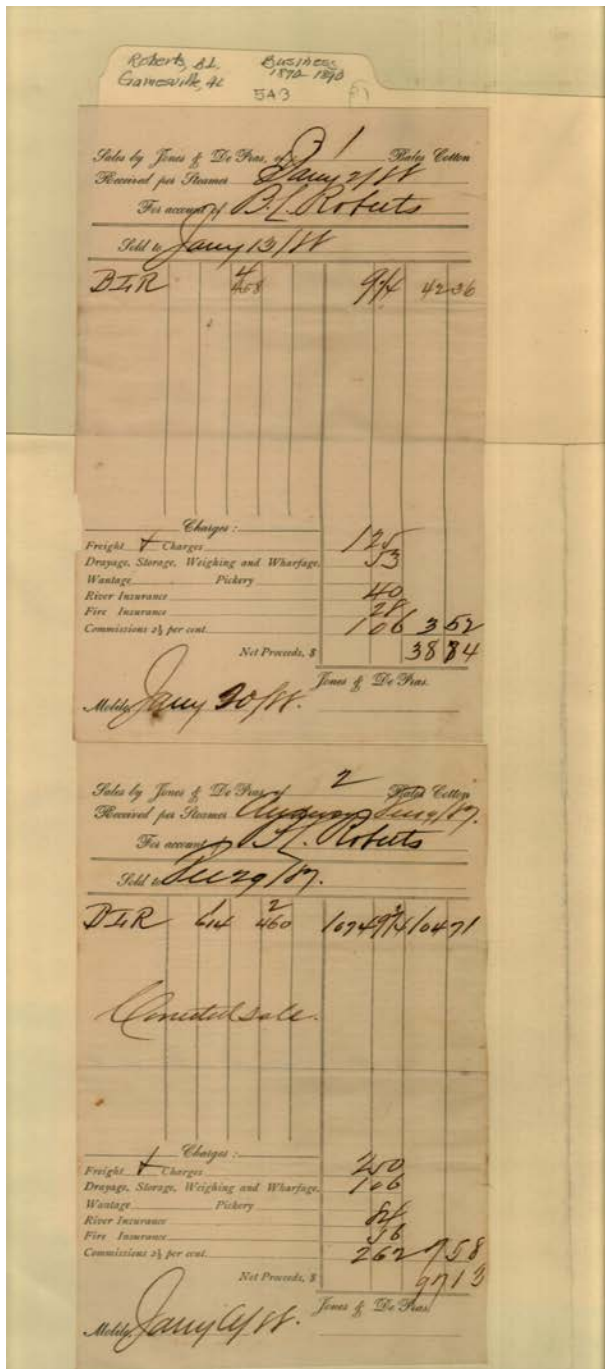 Roberts, B.L. Business
Gainesville, AL 1870-1890
5A3
Sales by Jones & De Fras, of 1 Bales Cotton
Received per Steamer Jany 2/88
For account of B.L. Roberts
Sold to Jany 13/88
BLR 4 458 9 1/4 42 36
Charges:
Freight & Charges 125
Drayage, Storage, Weighing and Wharfage, 53
Wantage Pickery
River Insurance 40
Fire Insurance 28
Commissions 2½ per cent. 106 3 52
Net Proceeds, $ 38 84
Jones & De Fras.
Mobile, Jany 20/88.
Sales by Jones & De Fras, of 2 Bales Cotton
Received per Steamer /87.
For account of B.L. Roberts
Sold to Dec 29/87.
BLR 1 614 2 460 1074 9 3/4 104 71
Corrected sale.
Charges:
Freight & Charges 250
Drayage, Storage, Weighing and Wharfage, 106
Wantage Pickery
River Insurance 84
Fire Insurance 56
Commissions 2½ per cent. 262 7 58
Net Proceeds, $ 97 13
Jones & De Fras.
Mobile, Jany /88.